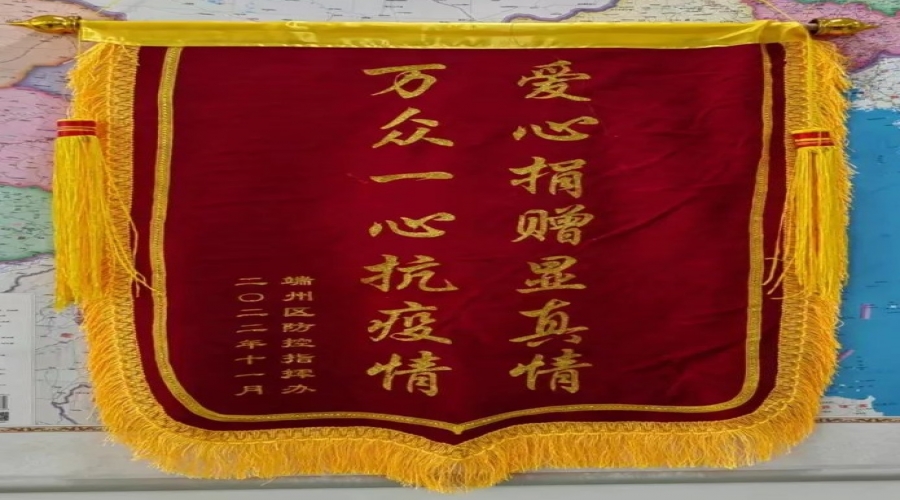 爱心捐赠显真情
万众一心抗疫情
端州区防控指挥办
二〇二二年十一月